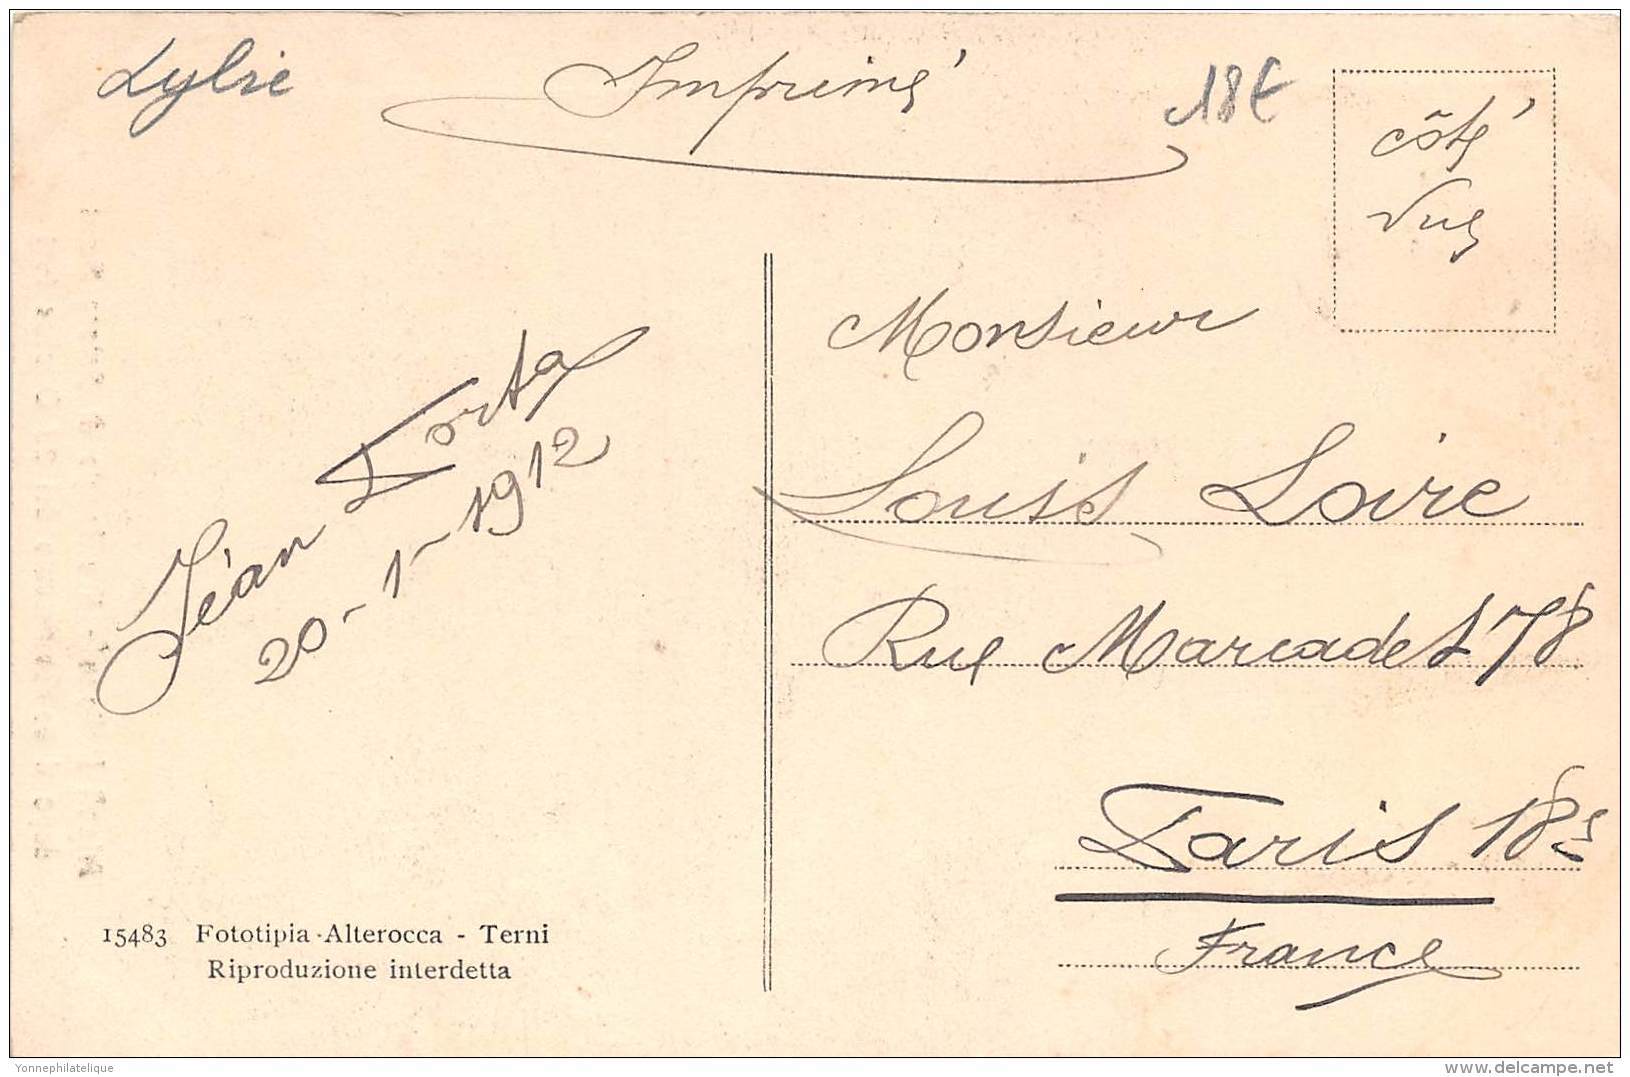 Lybie
Imprimé
18€
côté
vue
Monsieur
Louis Loire
Rue Marcadet 78
Paris 18e
France
Jéan Porta
20-1-1912
15483 Fototipia Alterocca - Terni
Riproduzione interdetta
Yonnephilatelique
delcampe.net